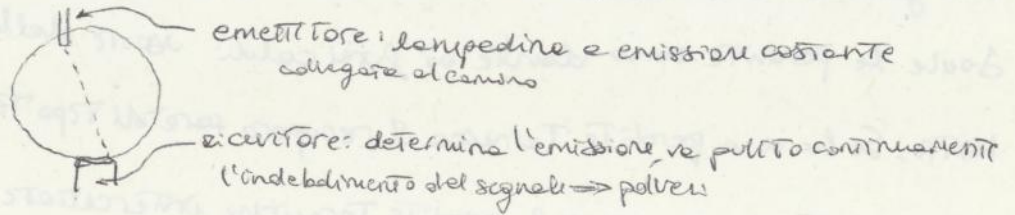 emettitore: lampadina a emissione costante
collegata al camino
ricevitore: determina l'emissione, va pulito continuamente
l'indebolimento del segnale => polveri